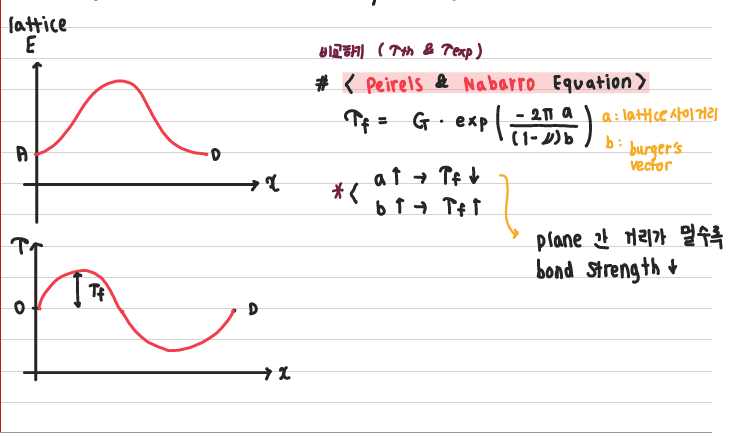 lattice
E
A
D
x
τ
0
τf
D
x
비교하기 ( τth & τexp )
# < Peirels & Nabarro Equation >
τf = G · exp ( -2π a / (1-ν)b )
a : lattice 사이거리
b : burger's
vector
* <
a ↑ → τf ↓
b ↑ → τf ↑
plane 간 거리가 멀수록
bond strength ↓